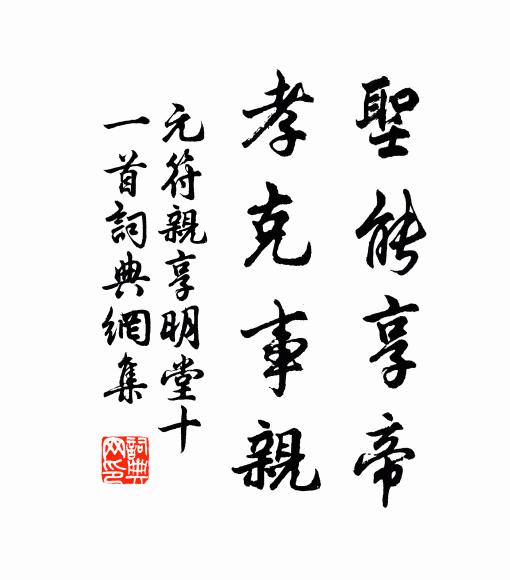 聖能享帝
孝克事親
元符親享明堂十
一首詞典網集
詞典网印